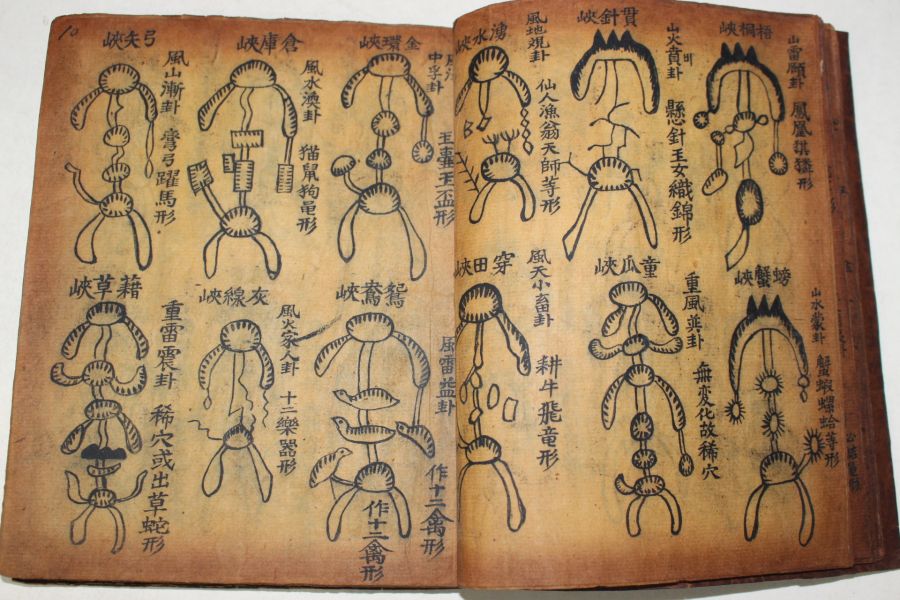 梧桐峽
山雷頤卦
鳳凰猉獜形
貫針峽
山火賁卦
비
懸針玉女織錦形
湧水峽
風地観卦
仙人漁翁天師等形
螃蟹峽
山水蒙卦
蟹蝦螺蛤等形
童瓜峽
重風巽卦
無變化故稀穴
穿田峽
風天小畜卦
耕牛飛竜形
金環峽
中孚卦
玉盃形
倉庫峽
風水渙卦
猫鼠狗黽形
弓矢峽
風山漸卦
彎弓躍馬形
鴛鴦峽
風雷益卦
作十二禽形
作十二禽形
灰線峽
風火家人卦
十二樂器形
藉草峽
重雷震卦
稀穴或出草蛇形
10